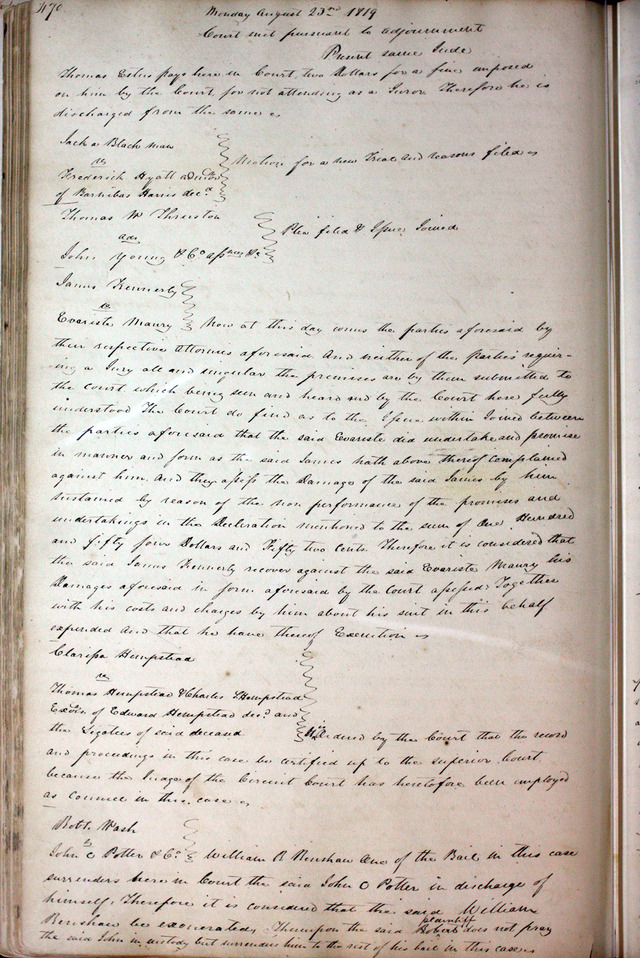 470
Monday August 23rd 1819
Court met pursuant to adjournment
Present same Jude
Thomas Estes pays here in Court two Dollars for a fine imposed
on him by the Court for not attending as a Juror Therefore he is
discharged from the same
Jack a Black man
vs
Motion for a new Trial and reasons filed
Frederick Hyatt admr
of Barnibas Harris decd
Thomas W Thruston
ads
Plea filed & Issue Joined
John Young & Co assnees &c
James Kennerly
vs
Evariste Maury Now at this day comes the parties aforesaid by
their respective attornies aforesaid And neither of the parties requir-
ing a Jury all and singular the premises are by them submitted to
the court which being seen and heard and by the Court here fully
understood The Court do find as to the Issue within Joined between
the parties aforesaid that the said Evariste did undertake and promise
in manner and form as the said James hath above thereof complained
against him. And they assess the Damage of the said James by him
sustained by reason of the non performance of the promises and
undertakings in the Declaration mentioned to the sum of One Hundred
and fifty four Dollars and Fifty two Cents Therefore it is considered that
the said James Kennerly recover against the said Evariste Maury his
Damages aforesaid in form aforesaid by the Court assessed Together
with his costs and charges by him about his suit in this behalf
expended And that he have thereof Execution
Clarissa Hempstead
vs
Thomas Hempstead & Charles S Hempstead
Exors of Edward Hempstead decd and
the Legatees of said deceased Ordered by the Court that the record
and proceedings in this case be certified up to the Superior Court
because the Judge of the Circuit Court has heretofore been employed
as Council in this case
Robt. Wash
vs
John C Potter & Co William R Renshaw One of the Bail in this case
surrenders here in Court the said John C Potter in discharge of
himself. Therefore it is considered that the said William
Renshaw be exonerated. Thereupon the said plaintiff Robert does not pray
the said John in custody but surrenders him to the rest of his bail in this case